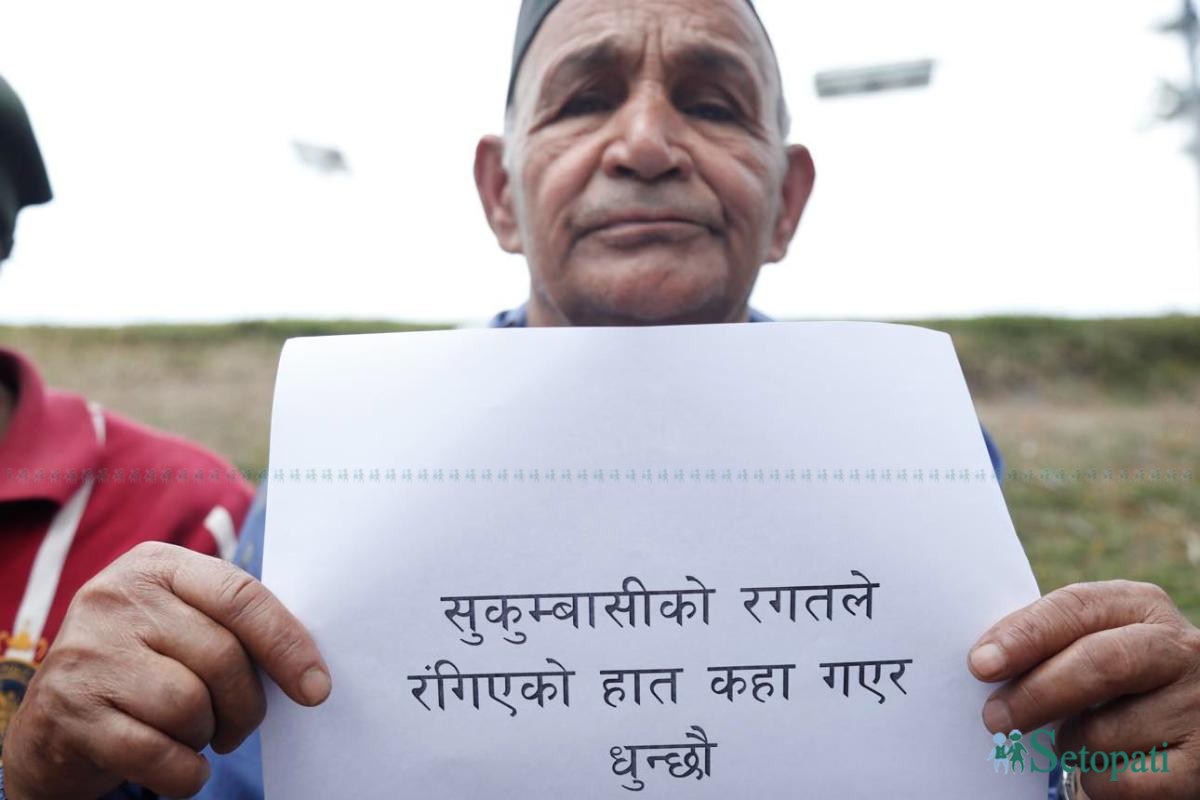 सुकुम्बासीको रगतले
रंगिएको हात कहा गएर
धुन्छौ
Setopati